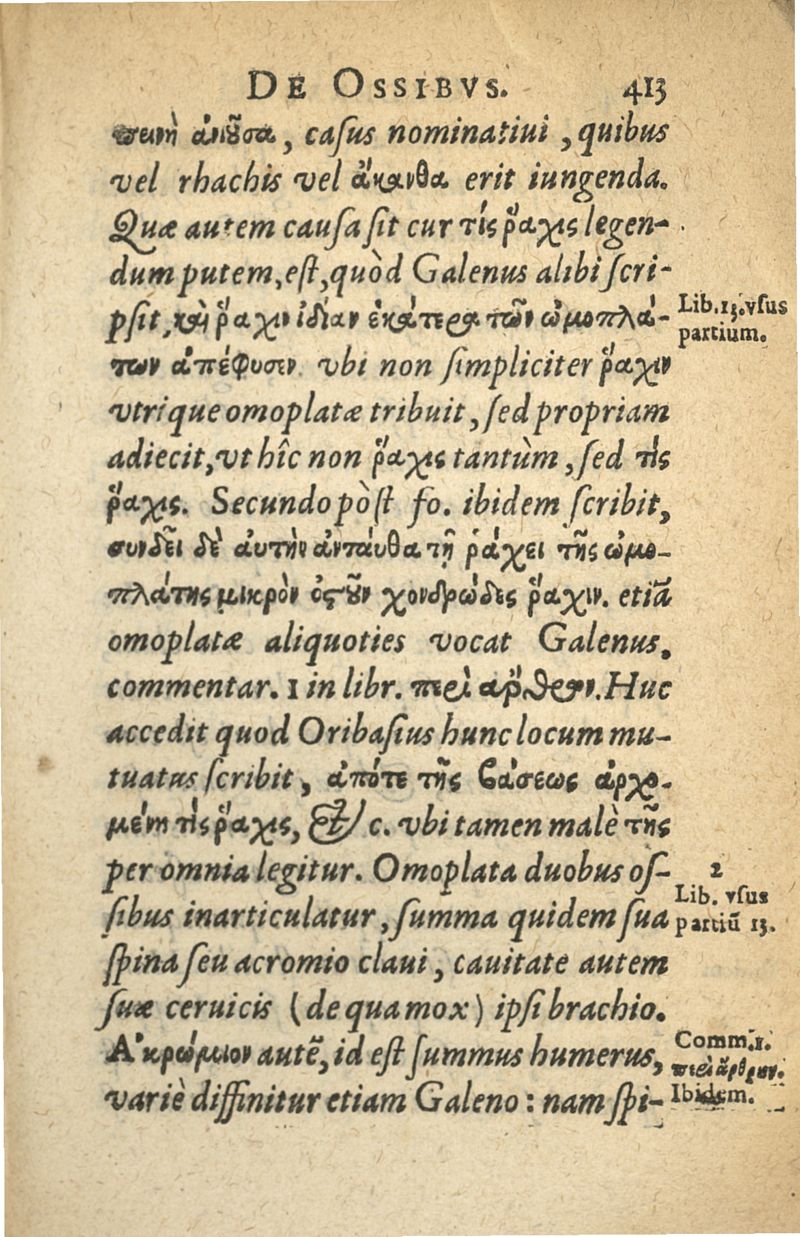 DE OSSIBVS. 413
ἀνιοῦσα, casus nominatiui, quibus
vel rhachis vel ἄκανθα erit iungenda.
Quæ autem causa sit cur τίς ῥάχις legen-
dum putem, est, quòd Galenus alibi scri-
psit, καὶ ῥάχιν ἰδίαν ἑκάτερα τῶν ὠμοπλά-
Lib. 13. vsus
partium.
των ἀπέφυσιν vbi non simpliciter ῥάχιν
vtrique omoplatæ tribuit, sed propriam
adiecit, vt hîc non ῥάχις tantùm, sed τὶς
ῥάχις. Secundo pòst fo. ibidem scribit,
συνδεῖ δὲ αυτὴν ἀνταύθα τῇ ῥάχει τῆς ὠμο-
πλάτης μικρὸν ὀστοῦν χονδρώδες ῥάχιν. etiã
omoplatæ aliquoties vocat Galenus.
commentar. 1 in libr. περὶ αρθρων. Huc
accedit quod Oribasius hunc locum mu-
tuatus scribit, ἀπότε τῆς βάσεως ἀρχο-
μένη τὶς ῥάχις, & c. vbi tamen malè τῆς
per omnia legitur. Omoplata duobus os-
2
Lib. vsus
partiũ 13.
sibus inarticulatur, summa quidem sua
spina seu acromio claui, cauitate autem
suæ ceruicis (de qua mox) ipsi brachio.
Ἀκρώμιον autẽ, id est summus humerus,
Comm. 1.
περὶ ἄρθρων.
Ibidem.
variè diffinitur etiam Galeno : nam spi-